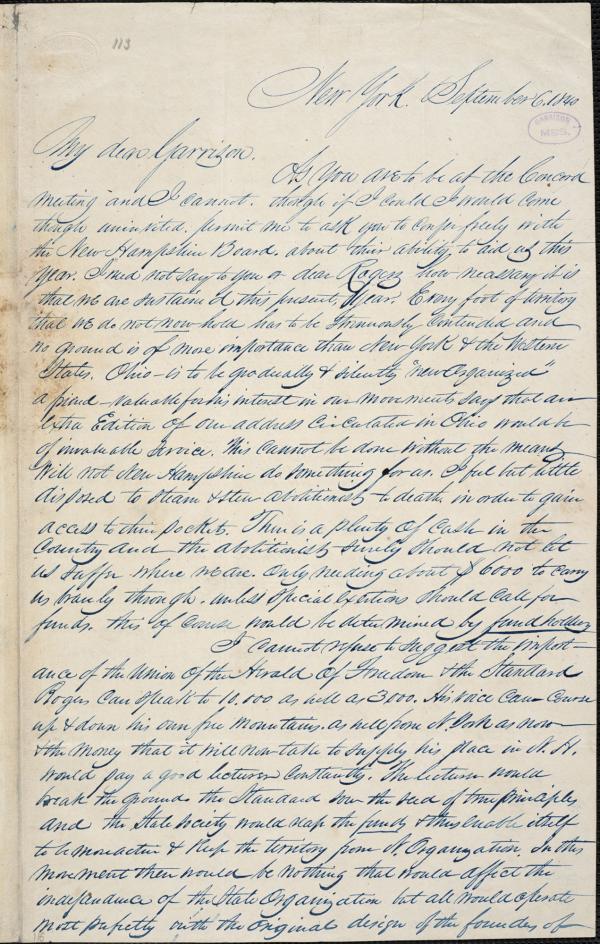 113
New York. September 6. 1840
GARRISON
MSS.
My dear Garrison.
As you are to be at the Concord
meeting and I cannot. though if I could I would come
though uninvited. permit me to ask you to confer freely with
the New Hampshire Board. about their ability to aid us this
year. I need not say to you or dear Rogers how necessary it is
that we are sustained this present year. Every foot of territory
that we do not now hold has to be strenuously contended and
no ground is of more importance than New York & the Western
States. Ohio is to be gradually & silently "new Organized"
a friend - valuable for his interest in our movements says that an
extra Edition of our address circulated in Ohio would be
of invaluable service. This cannot be done without the means
Will not New Hampshire do something for us. I feel but little
disposed to steam & stew abolitionists to death in order to gain
access to their pocket. There is a plenty of cash in the
Country and the abolitionists surely should not let
us suffer where we are. only needing about $6000 to carry
us bravely through. unless special exertions should call for
funds. this of course would be determined by fund holders
I cannot refuse to suggest the import-
ance of the Union of the Herald of Freedom & the Standard
Rogers can speak to 10.000 as well as 3000. His voice can course
up & down his own free mountains. as well from N. York as now
& the money that it will now take to supply his place in N. H.
would pay a good lecturer constantly. The lecturer would
break the ground. the Standard sow the seed of true principles
and the State Society would reap the funds & thus enable itself
to be more active & keep the territory from N. Organization. In this
movement there would be nothing that would affect the
independence of the State Organization but all would operate
most perfectly with the original design of the founders of